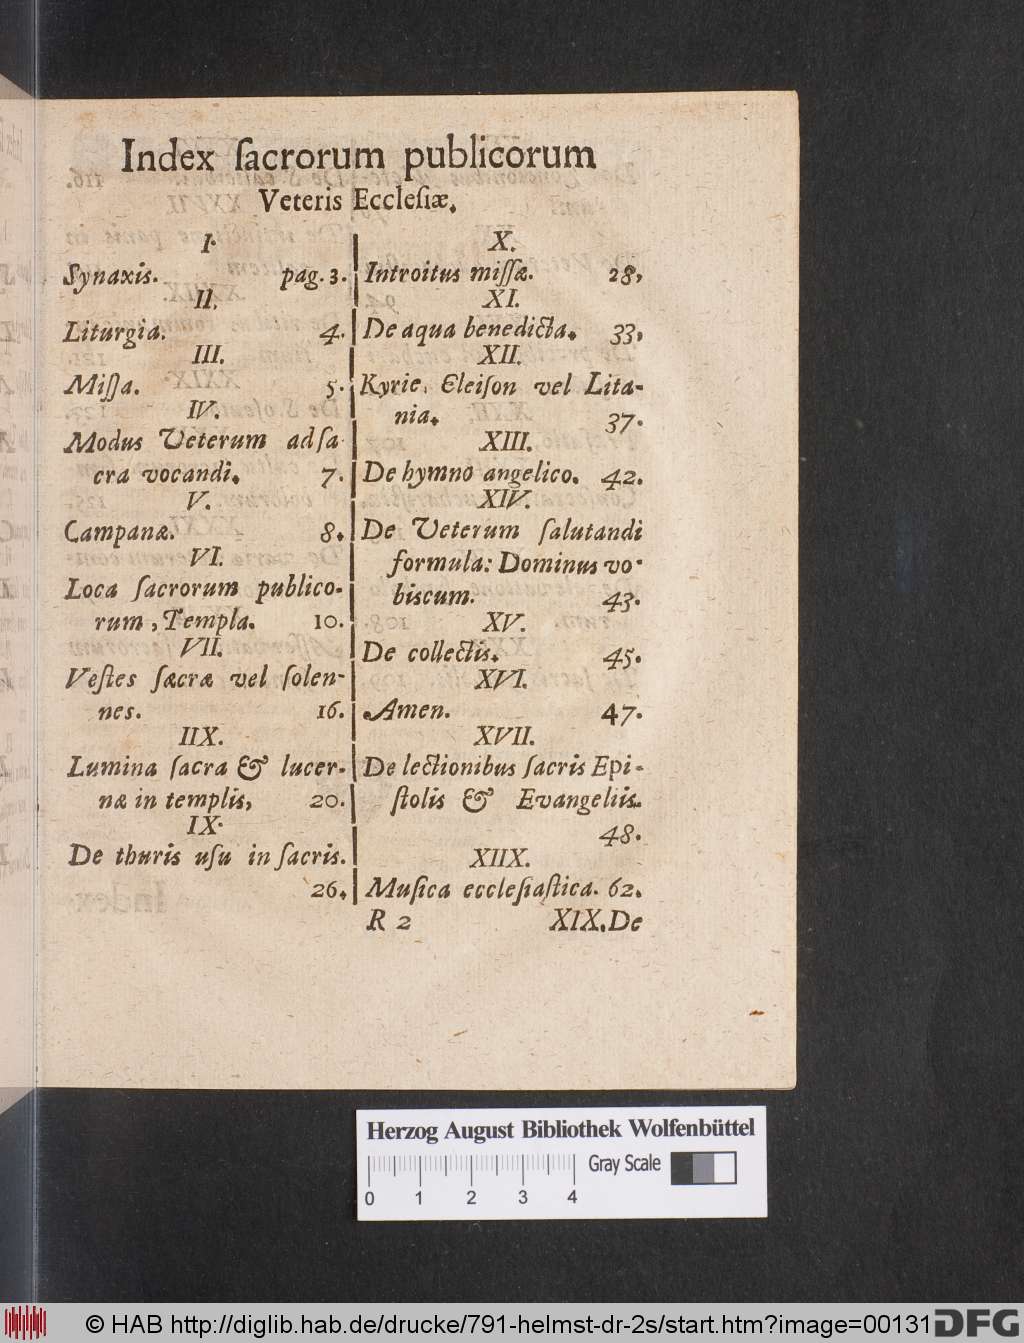 Index ſacrorum publicorum
Veteris Eccleſiæ.
I.
Synaxis. pag. 3.
II.
Liturgia. 4.
III.
Miſſa. 5.
IV.
Modus Veterum ad ſa-
cra vocandi. 7.
V.
Campanæ. 8.
VI.
Loca ſacrorum publico-
rum, Templa. 10.
VII.
Veſtes ſacræ vel ſolen-
nes. 16.
IIX.
Lumina ſacra & lucer-
næ in templis, 20.
IX.
De thuris uſu in ſacris.
26.
X.
Introitus miſſæ. 28,
XI.
De aqua benedicta. 33,
XII.
Kyrie, Eleiſon vel Lita-
nia. 37.
XIII.
De hymno angelico. 42.
XIV.
De Veterum ſalutandi
formula: Dominus vo-
biscum. 43.
XV.
De collectis. 45.
XVI.
Amen. 47.
XVII.
De lectionibus ſacris Epi-
ſtolis & Evangeliis.
48.
XIIX.
Muſica eccleſiaſtica. 62.
R 2 XIX. De
Herzog August Bibliothek Wolfenbüttel
Gray Scale
0 1 2 3 4
© HAB http://diglib.hab.de/drucke/791-helmst-dr-2s/start.htm?image=00131
DFG